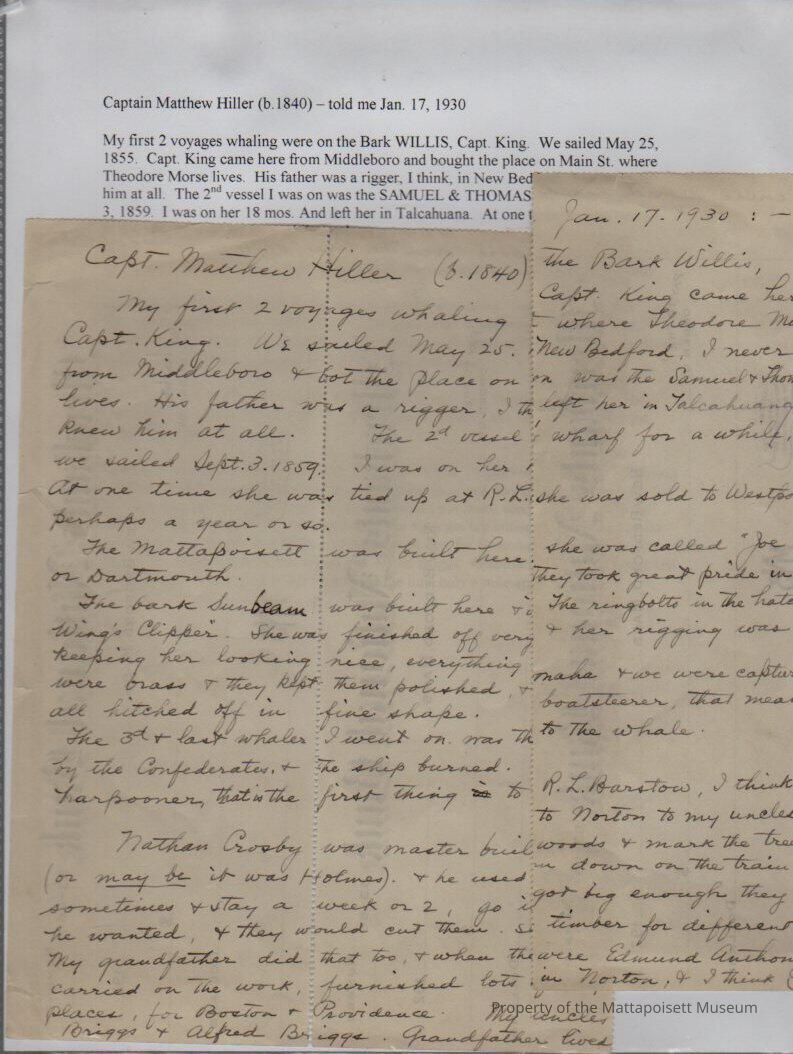 Captain Matthew Hiller (b.1840) – told me Jan. 17, 1930
My first 2 voyages whaling were on the Bark WILLIS, Capt. King. We sailed May 25,
1855. Capt. King came here from Middleboro and bought the place on Main St. where
Theodore Morse lives. His father was a rigger, I think, in New Bed
him at all. The 2nd vessel I was on was the SAMUEL & THOMAS
3, 1859. I was on her 18 mos. And left her in Talcahuana. At one t
Capt. Matthew Hiller (b.1840)
My first 2 voyages whaling
Capt. King. We sailed May 25.
from Middleboro & bot the place on
lives. His father was a rigger, I th
knew him at all. The 2d vessel
we sailed Sept. 3. 1859. I was on her
At one time she was tied up at R.L.
perhaps a year or so.
The Mattapoisett was built here
or Dartmouth.
The bark Sunbeam was built here &
Wing's Clipper". She was finished off very
keeping her looking nice, everything
were brass & they kept them polished, &
all hitched off in fine shape.
The 3d & last whaler I went on was th
by the Confederates, & the ship burned.
harpooner, that is the first thing to
Nathan Crosby was master buil
(or may be it was Holmes). & he used
sometimes & stay a week or 2, go i
he wanted, & they would cut them. S
My grandfather did that too, & when the
carried on the work, furnished lots
places, for Boston & Providence. My uncles
Briggs & Alfred Briggs. Grandfather lived
Jan. 17. 1930 : –
the Bark Willis,
Capt. King came her
where Theodore Mo
New Bedford, I never
on was the Samuel & Thom
left her in Talcahuana
wharf for a while,
she was sold to Westpo
she was called "Joe
They took great pride in
The ringbolts in the hatc
& her rigging was
make & we were captur
boatsteerer, that mea
to the whale.
R.L. Barstow, I think
to Norton to my uncles
woods & mark the tree
down on the train
got big enough they
timber for different
were Edmund Anthon
in Norton, & I think
Property of the Mattapoisett Museum